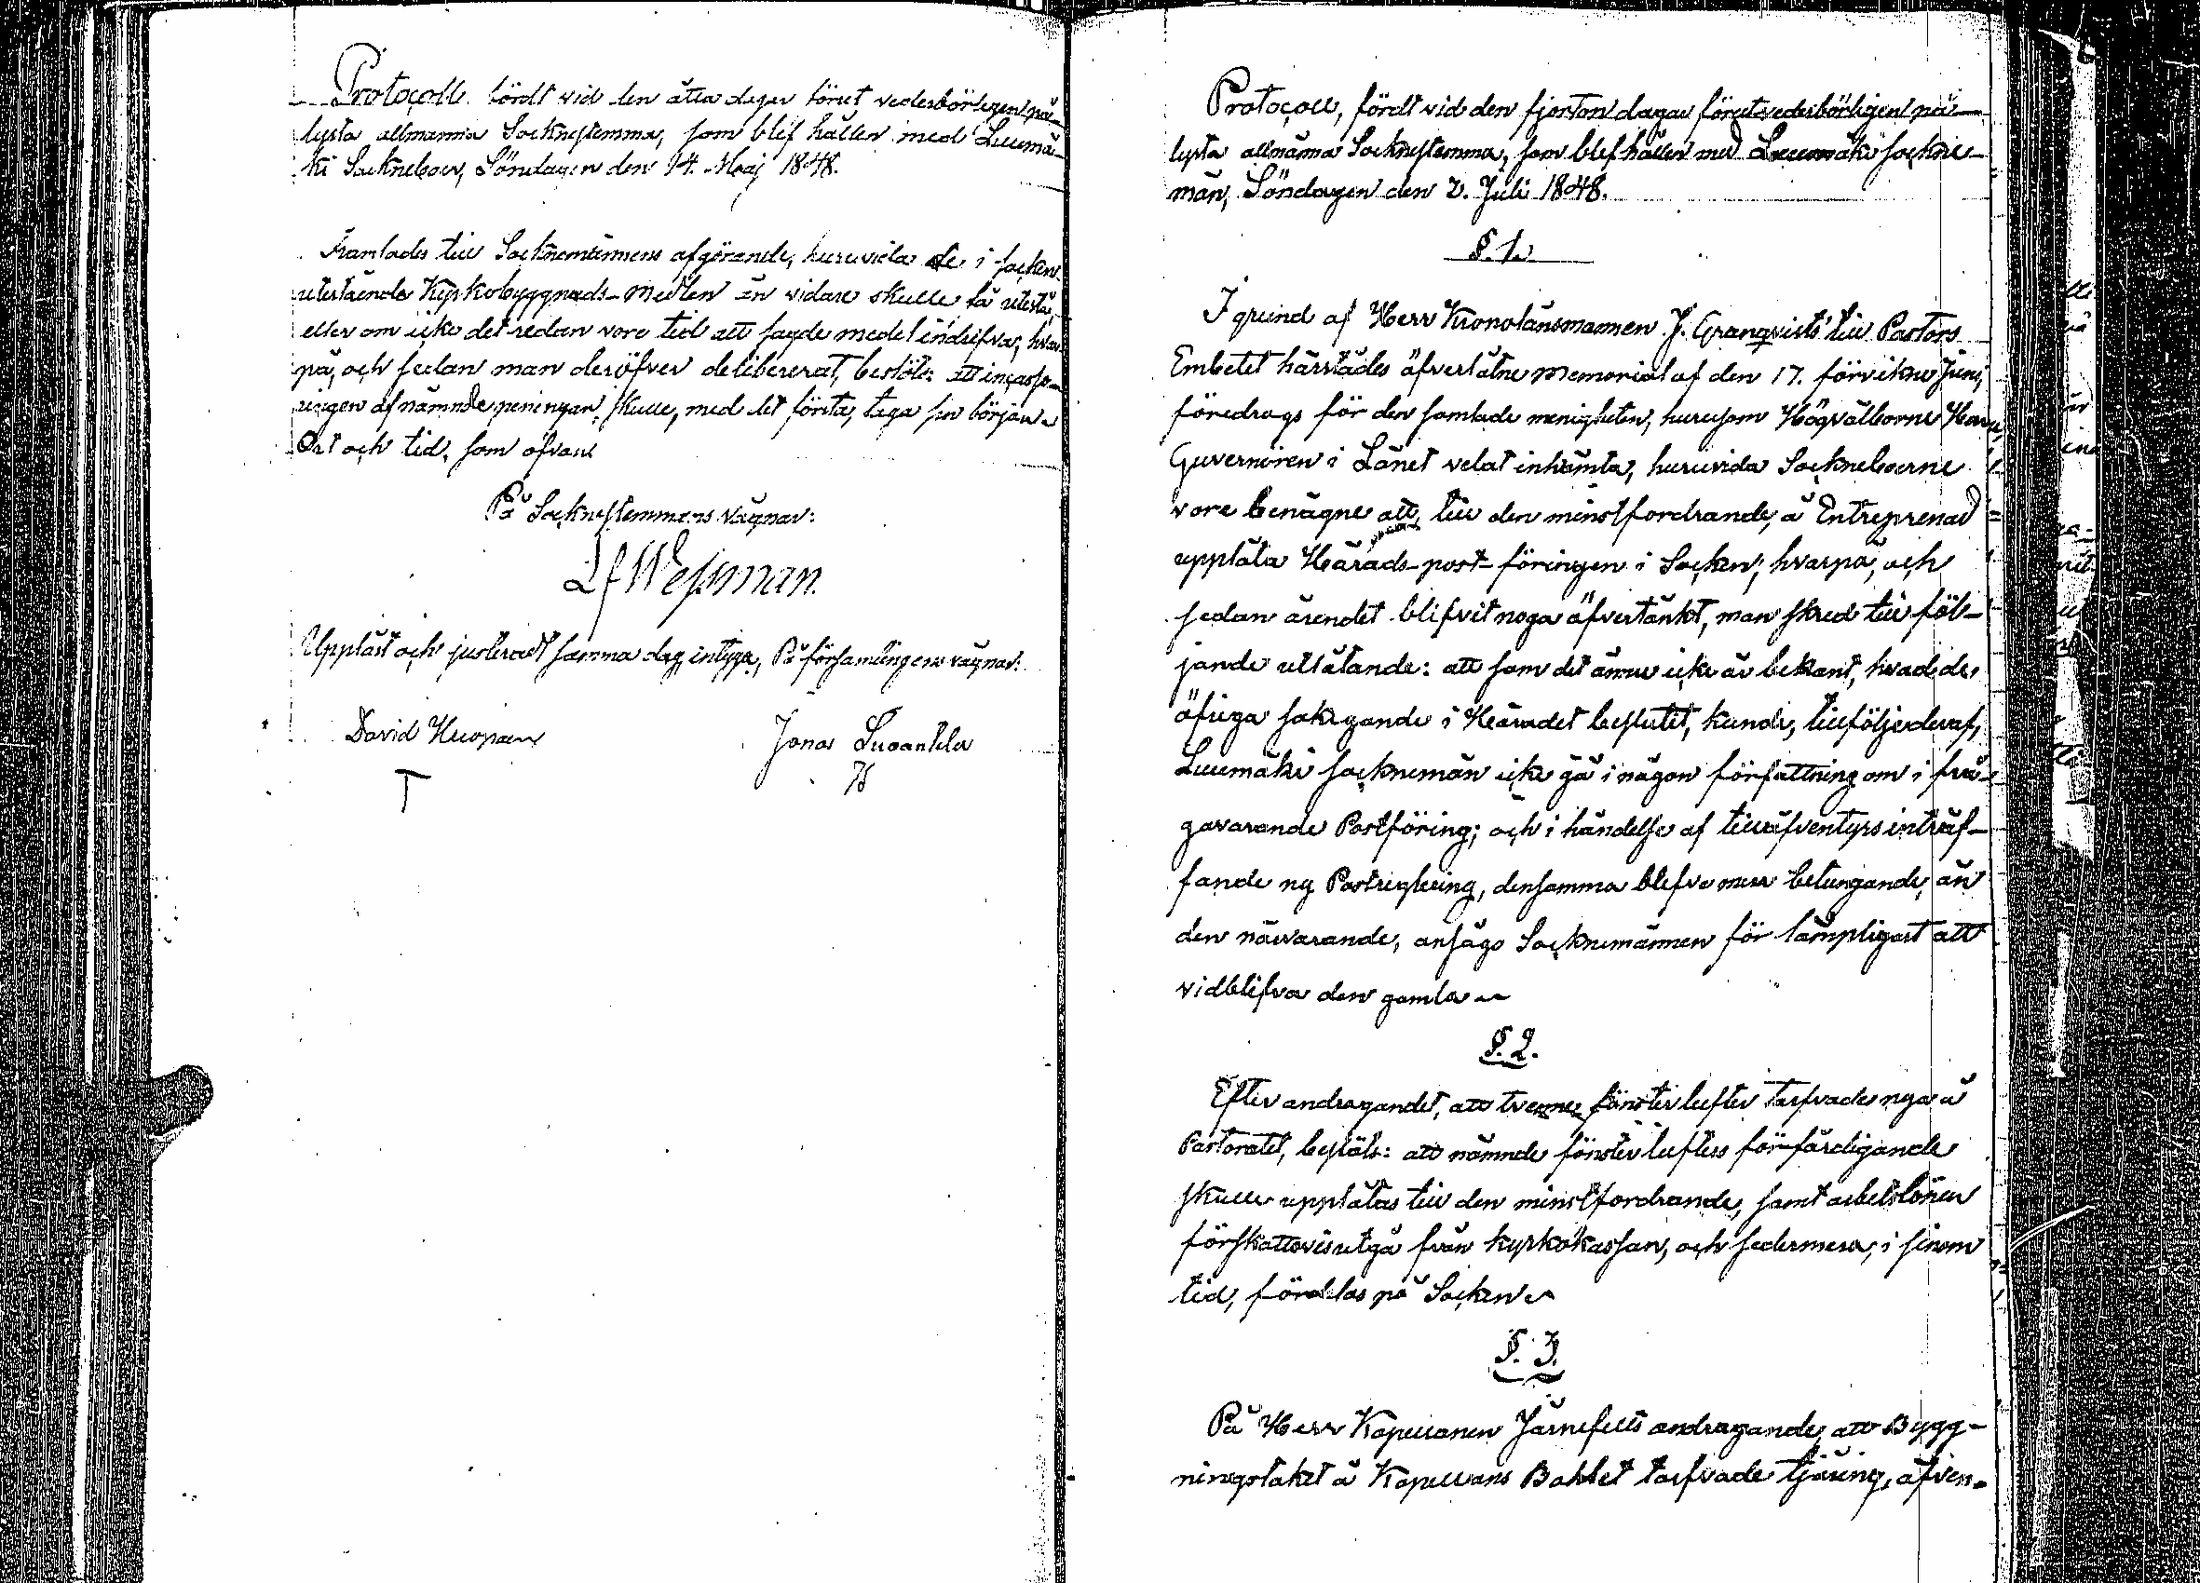 Protocoll fördt vid den åtta dagar förut vederbörligen på-
lysta allmänna Socknestemma, som blef hållen med Luumä-
ki Sockneboer, Söndagen den 14. Maj 1848.
Framlades till Socknemännens afgörande, huruvida de i Socken
utestående Kyrkobyggnads-medlen än vidare skulle få utestå,
eller om icke det redan vore tid att sagde medel indrifvas, hvar-
på, och sedan man deröfver delibererat, beslöts: att incasse-
ringen af nämnde peningar skulle, med det första, taga sin början.
Ort och tid, som ofvan
På Socknestemmans vägnar:
Lf Wessman.
Uppläst och justeradt samma dag, intyga, På församlingens vägnar:
David Huopain Jonas Suoantila
Protocoll, fördt vid den fjorton dagar förut vederbörligen på-
lysta allmänna Socknestemma, som blef hållen med Luumäki sockne-
män, Söndagen den 2. Juli 1848.
§. 1.
I grund af Herr Kronolänsmannen J. Granqvists till Pastors
Embetet härstädes öfverlåtne memorial af den 17. förvikne Junij,
föredrogs för den samlade menigheten, hurusom Högvälborne Herr
Guvernören i Länet velat inhämta, huruvida Sockneboerne
vore benägne att, till den minstfordrande, å Entreprenad
upplåta Härads-post-föringen i Socken; hvarpå, och
sedan ärendet blifvit noga öfvertänkt, man skred till föl-
jande utlåtande: att som det ännu icke är bekant, hvad de
öfriga sakegande i Häradet beslutit, kunde, till följe deraf,
Luumäki socknemän icke gå i någon författning om i frå-
gavarande Postföring; och i händelse af till äfventyrs inträf-
fande ny Postreglering, densamma blefve mera betungande, än
den närvarande, ansågo Socknemännen för lämpligast att
vidblifva den gamla
§. 2.
Efter andragandet, att tvenne fönster lufter tarfvades nya å
Pastoratet, beslöts: att nämnde fönster lufters förfärdigande
skulle upplåtas till den minstfordrande, samt arbetslönen
förskottsvis utgå från kyrkokassan, och sedermera, i sinom
tid, fördelas på Socken
§. 3.
På Herr Kapellanen Järnefelts andragande, att Bygg-
ningstaket å Kapellans Bohlet tarfvade tjäring, äfven-